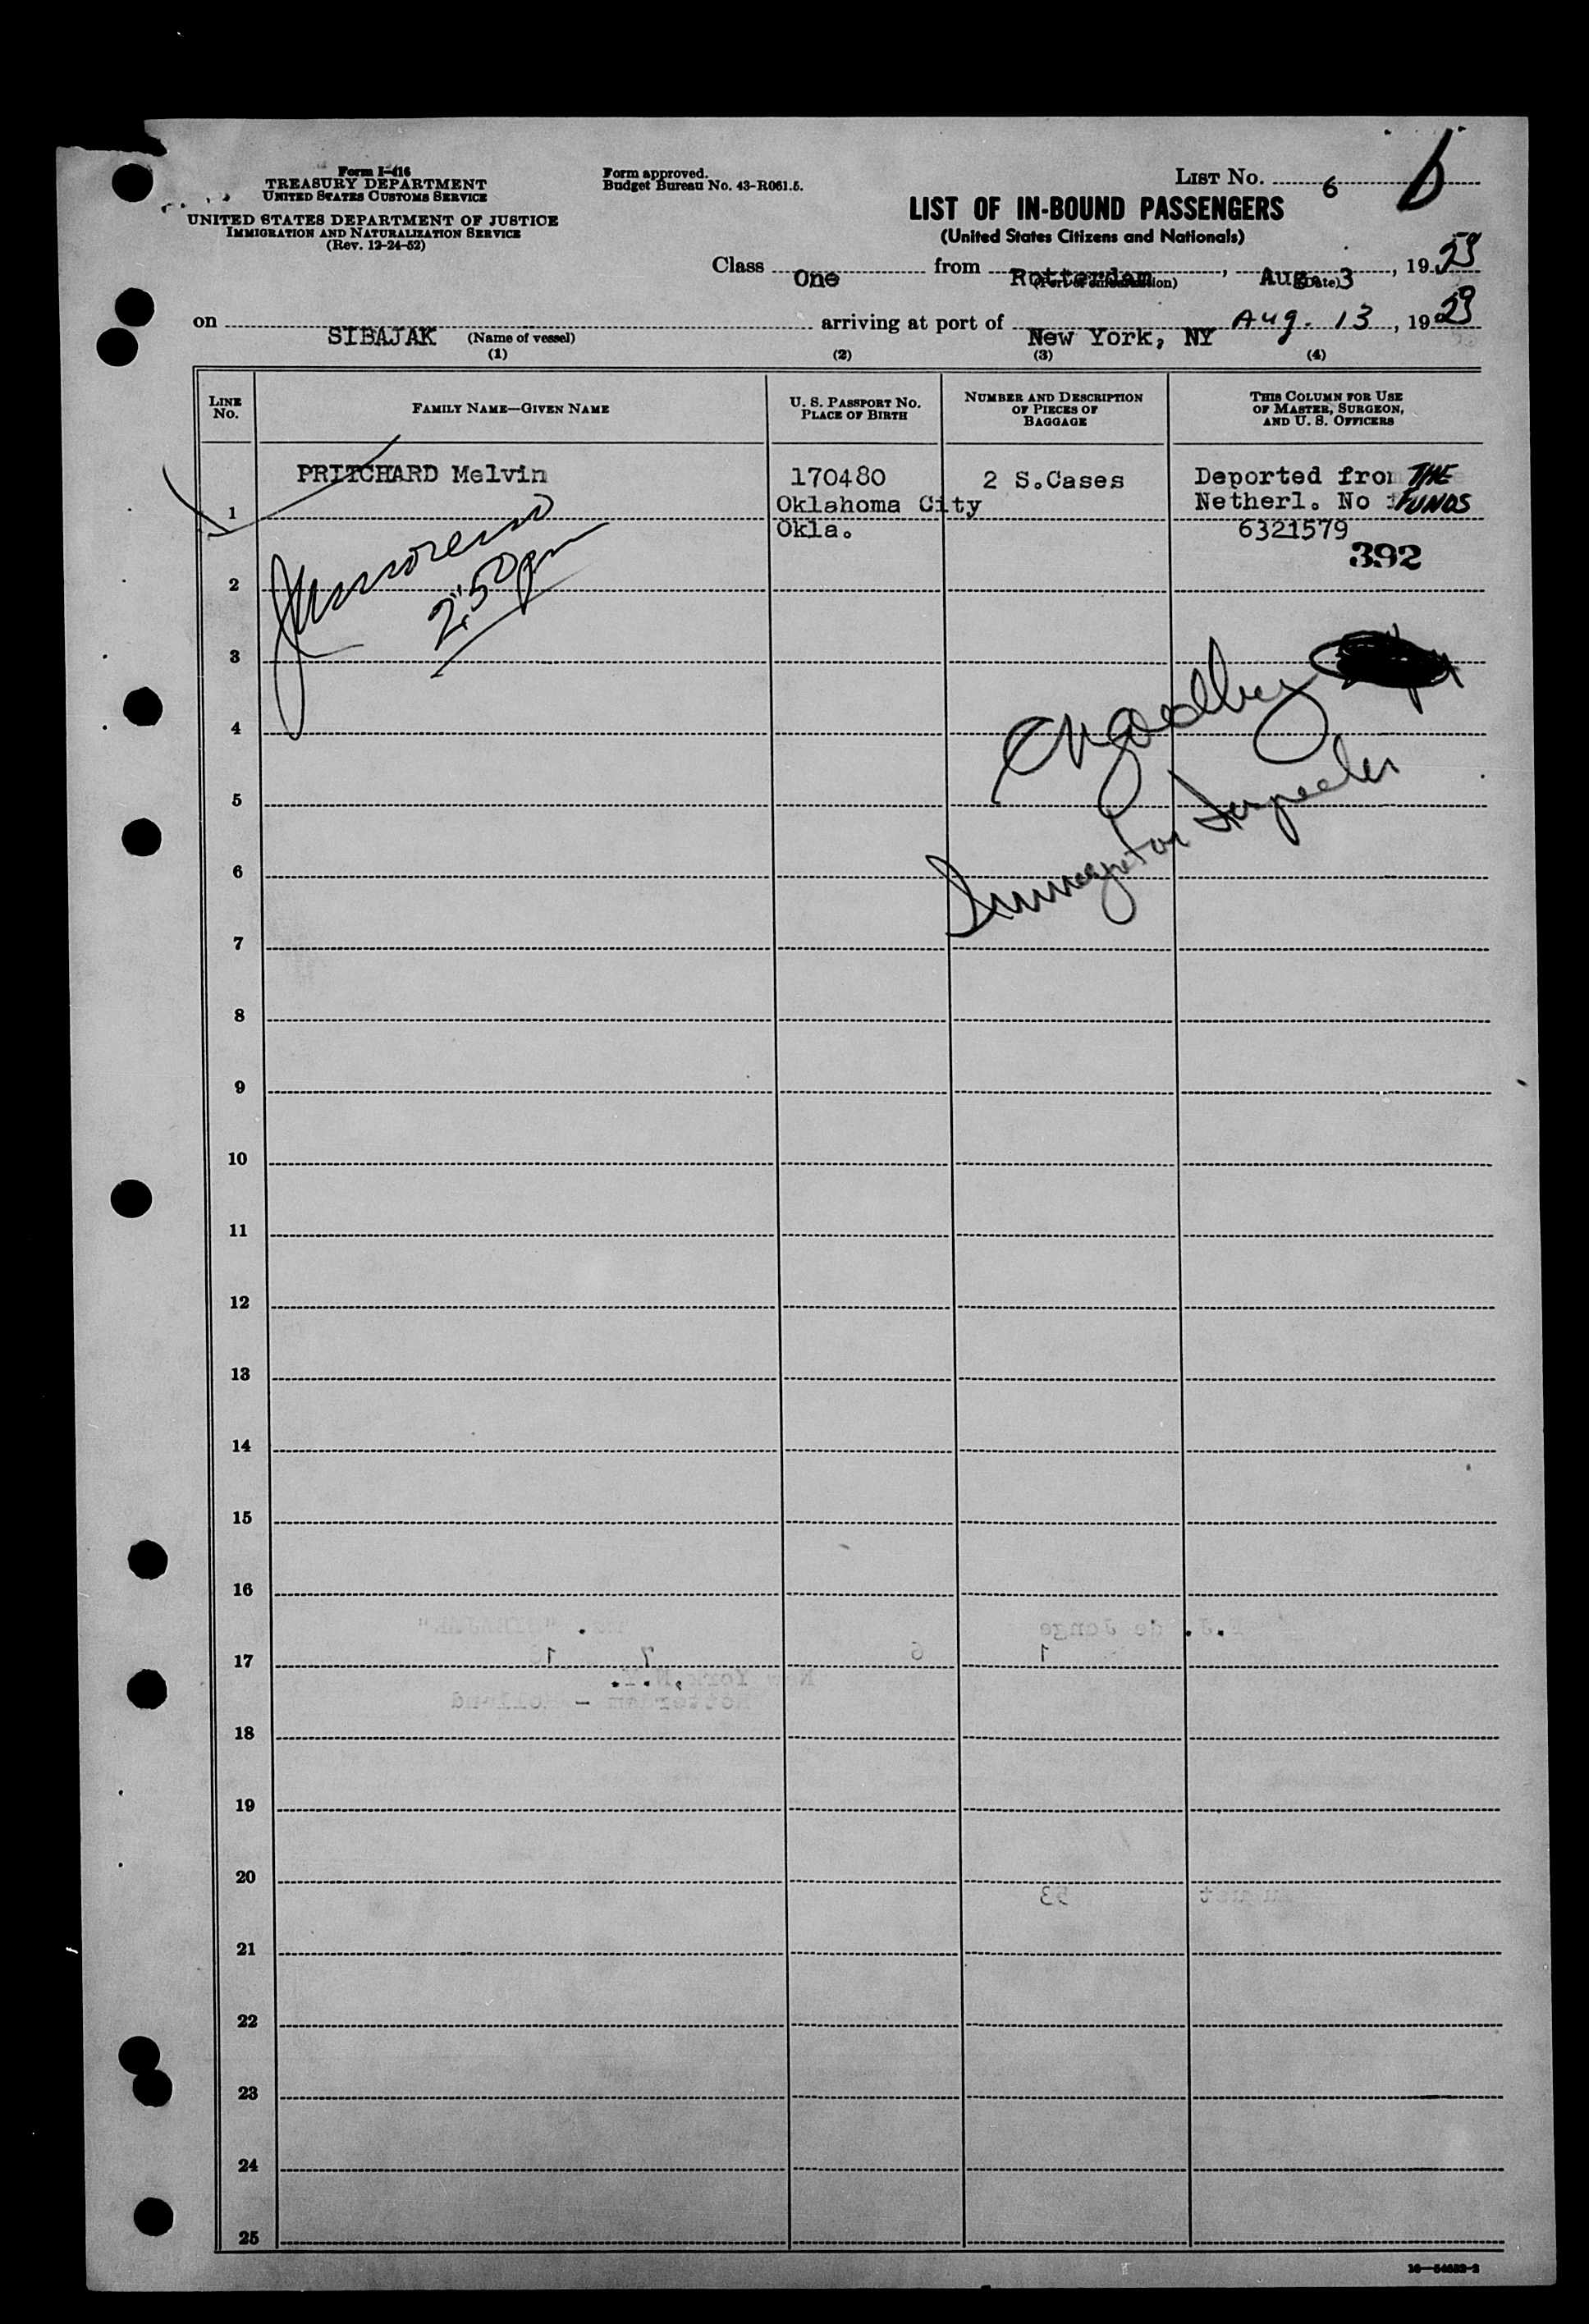 Form I-416
TREASURY DEPARTMENT
UNITED STATES CUSTOMS SERVICE
UNITED STATES DEPARTMENT OF JUSTICE
IMMIGRATION AND NATURALIZATION SERVICE
(Rev. 12-24-52)
Form approved.
Budget Bureau No. 43-R061.5.
LIST No. 6
LIST OF IN-BOUND PASSENGERS
(United States Citizens and Nationals)
Class One from Rotterdam, Aug. 3, 19
(Port of embarkation) (Date)
on SIBAJAK arriving at port of New York, NY Aug. 13, 19
(Name of vessel)
(1) (2) (3) (4)
LINE No. FAMILY NAME—GIVEN NAME U. S. PASSPORT NO. PLACE OF BIRTH NUMBER AND DESCRIPTION OF PIECES OF BAGGAGE THIS COLUMN FOR USE OF MASTER, SURGEON, AND U. S. OFFICERS
PRITCHARD Melvin 170480 2 S.Cases Deported from THE
1 Oklahoma City Netherl. No FUNDS
Okla. 6321579
392
2
2:50 pm
3
4
5
6
Immigration Inspector
7
8
9
10
11
12
13
14
15
16
17
18
19
20
21
22
23
24
25